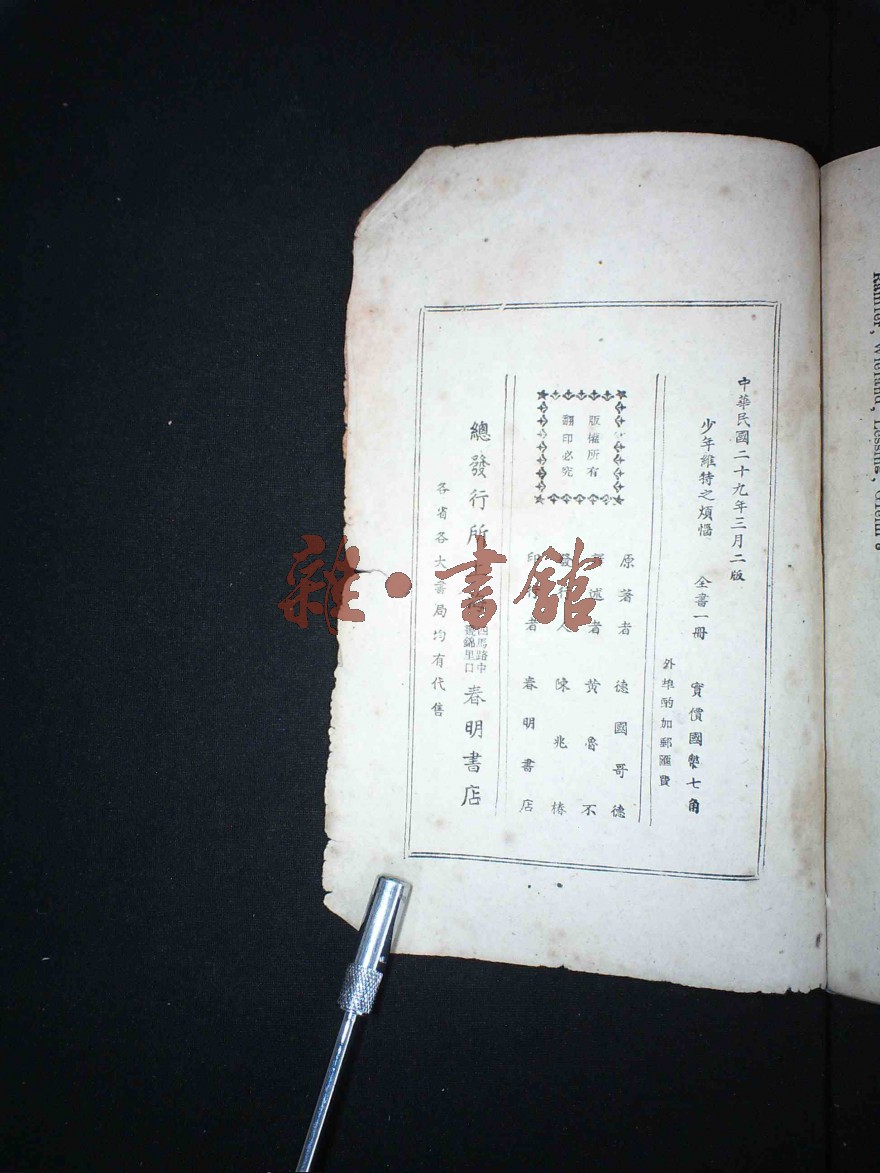 中華民國二十九年三月二版
少年維特之煩惱 全書一冊 實價國幣七角
外埠酌加郵匯費
原著者 德國哥德
述者 黃魯不
發行人 陳兆椿
印者 春明書店
版權所有
翻印必究
總發行所
四馬路中
錦里口
春明書店
各省各大書局均有代售
雜·書館
Ramler, Wieland, Lessing, Gleim a